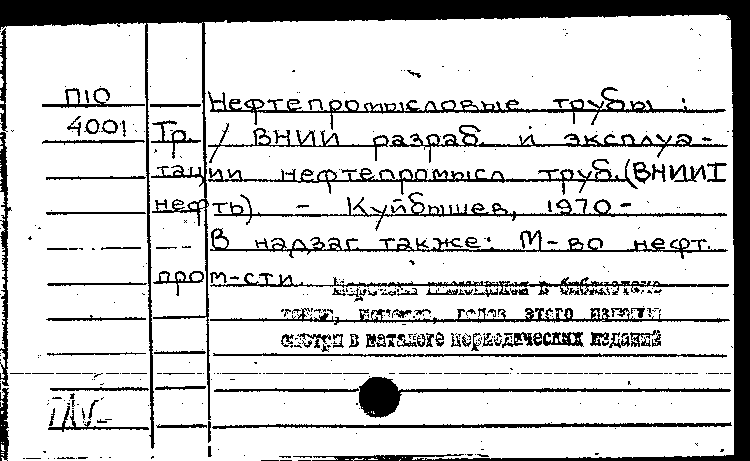 П10
Нефтепромысловые трубы :
4001
Тр. / ВНИИ разраб. и эксплуа-
тации нефтепромысл труб.(ВНИИТ
нефть). – Куйбышев, 1970-
В надзаг также: М-во нефт.
пром-сти.
Перечень имеющихся в библиотеке
томов, номеров, годов этого издания
смотри в каталоге периодических изданий